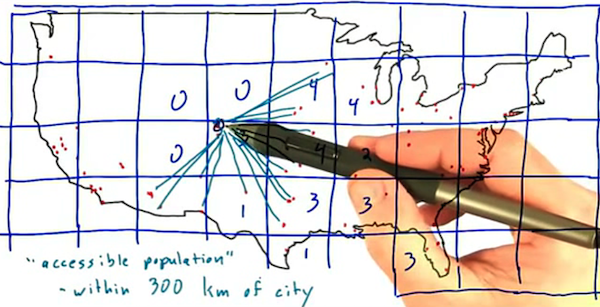 0 0 4 4
0 4 2
1 3 3
1 3
"accessible population"
- within 300 km of city